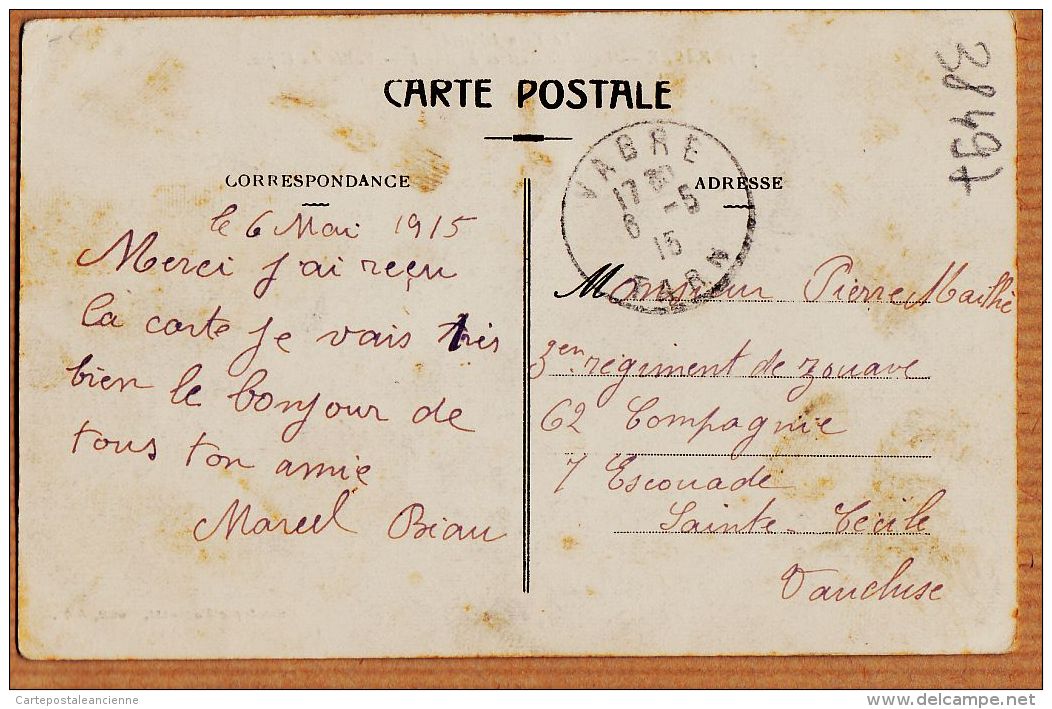 CARTE POSTALE
CORRESPONDANCE
le 6 Mai 1915
Merci j'ai reçu
la carte je vais très
bien le bonjour de
tous ton amie
Marcel Biau
3849
VABRE
17 30
6 -5
15
TARN
ADRESSE
Monsieur Pierre Mailhé
3en régiment de zouave
62 Compagnie
7 Escouade
Sainte-Cécile
Vaucluse
Cartepostaleancienne
delcampe.net